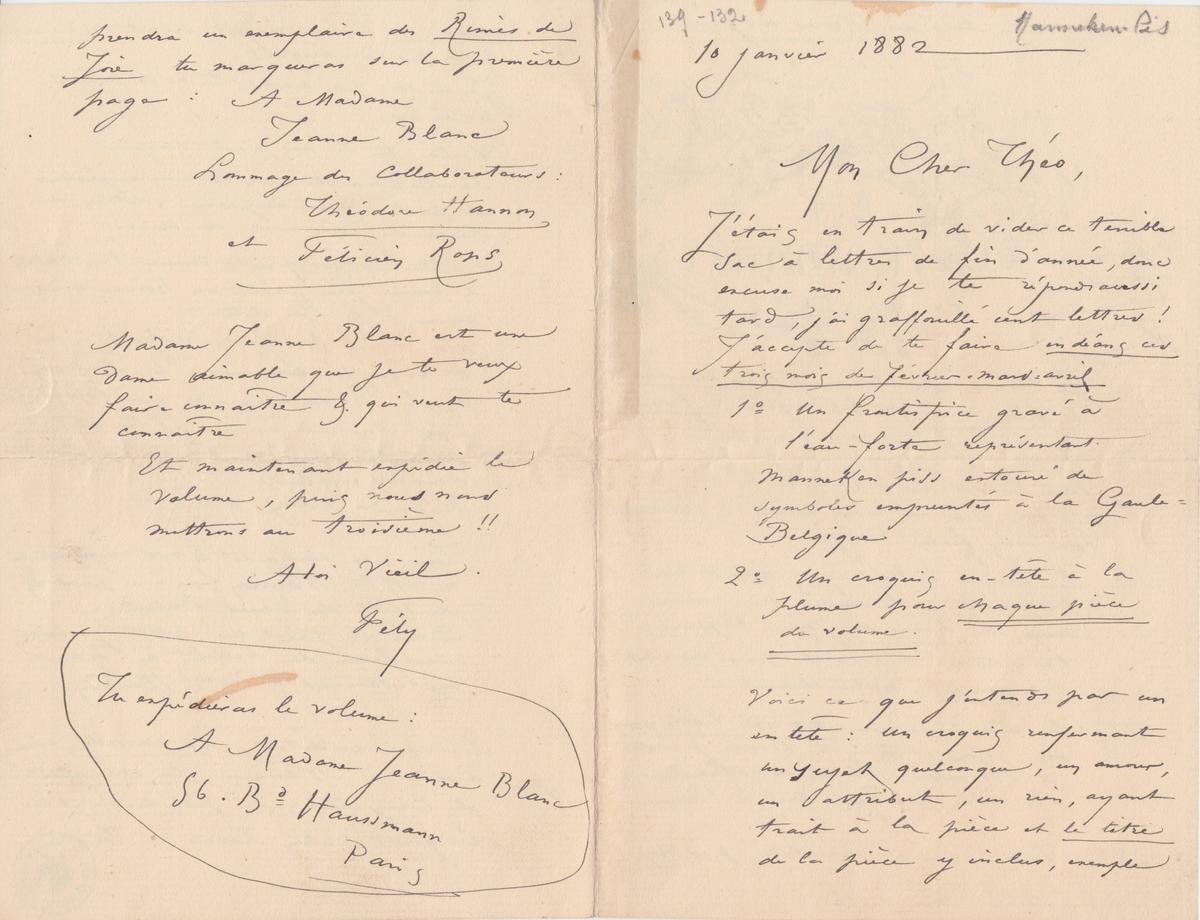 prendra un exemplaire des Rimes de
Joie tu marqueras sur la première
page : A Madame
Jeanne Blanc
Hommage des Collaborateurs :
Théodore Hannon
et Félicien Rops
Madame Jeanne Blanc est une
Dame aimable que je te veux
faire connaître & qui veut te
connaître
Et maintenant expédie le
volume, puis nous nous
mettrons au troisième !!
A toi Vieil.
Fély
Tu expédieras le volume :
A Madame Jeanne Blanc
56. Bd Haussmann
Paris
139-132
Manneken-Pis
10 janvier 1882
Mon Cher Théo,
J'étais en train de vider ce terrible
sac à lettres de fin d'année, donc
excuse moi si je te réponds aussi
tard, j'ai graffouillé cent lettres !
J'accepte de te faire endéans ces
trois mois de février-mars-avril
1º Un frontispice gravé à
l'eau-forte représentant
Manneken piss entouré de
symboles empruntés à la Gaule-
Belgique
2º Un croquis en-tête à la
plume pour chaque pièce
du volume.
Voici ce que j'entends par un
en tête : un croquis renfermant
un sujet quelconque, un amour,
un attribut, un rien, ayant
trait à la pièce et le titre
de la pièce y inclus, exemple